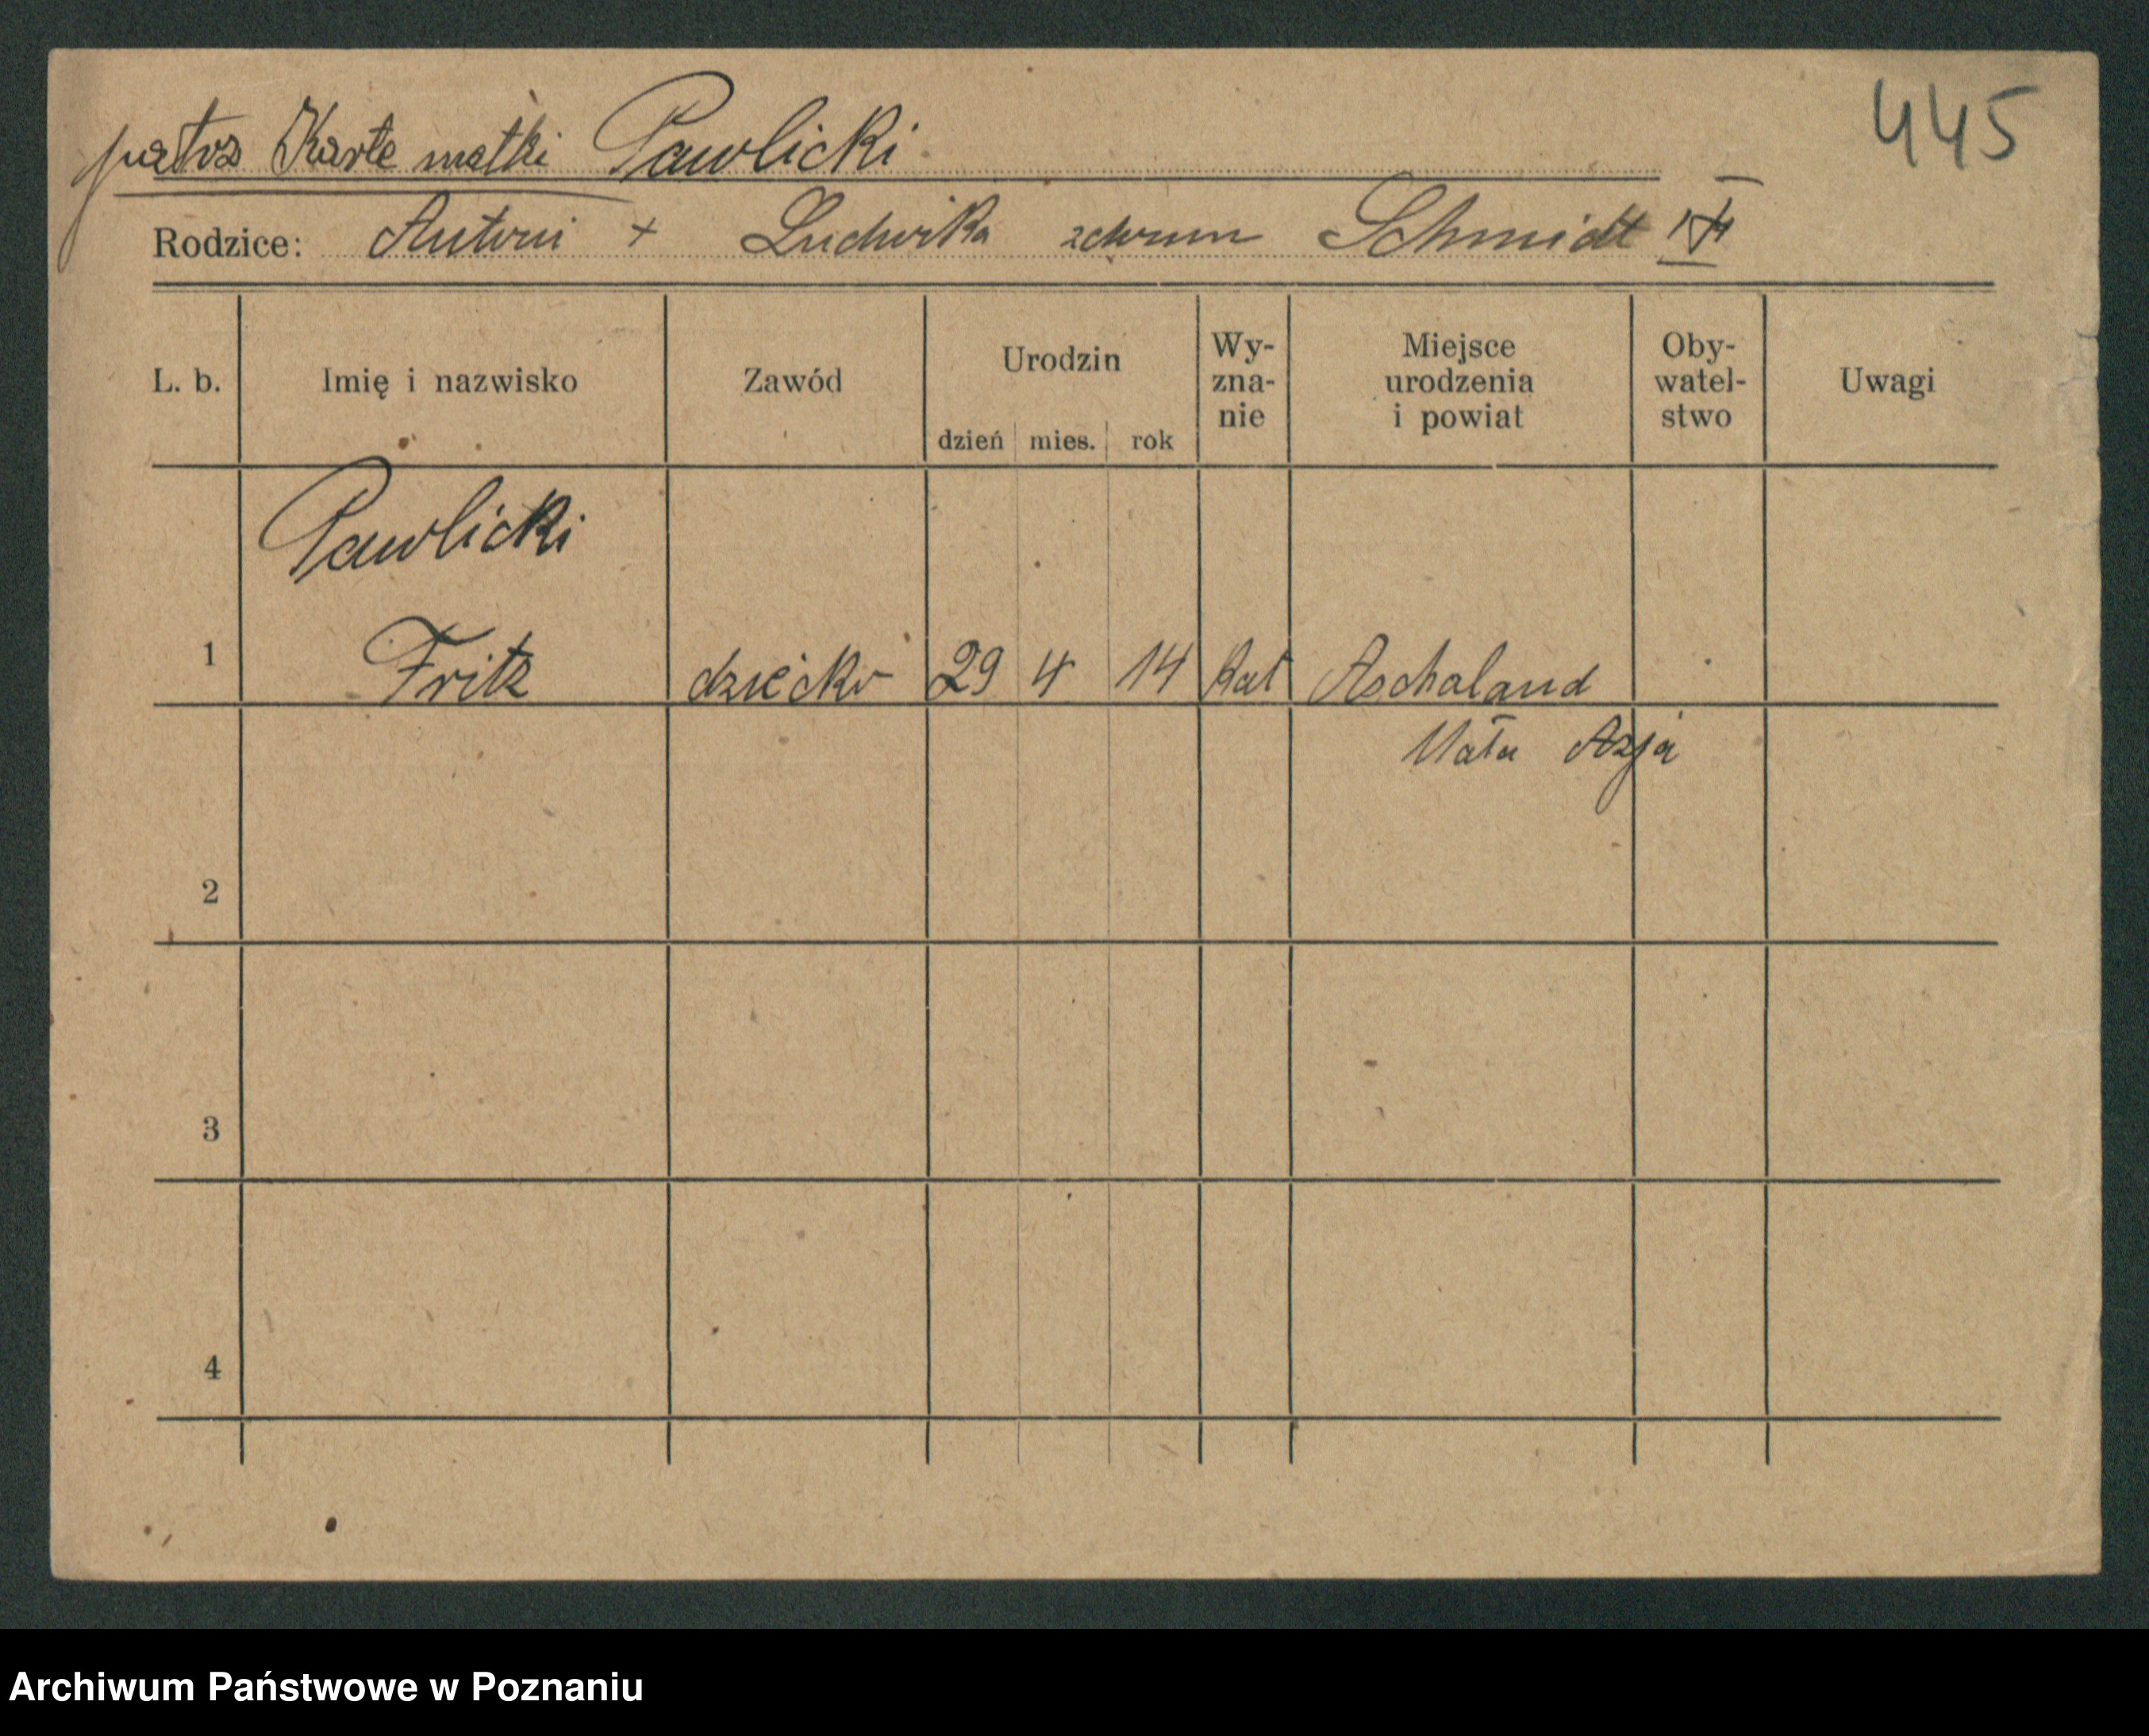 445
patrz Karte matki Pawlicki
Rodzice: Antoni + Ludwika Schmidt
L. b. Imię i nazwisko Zawód Urodzin dzień mies. rok Wy- zna- nie Miejsce urodzenia i powiat Oby- watel- stwo Uwagi
Pawlicki
1 Fritz dziecko 29 4 14 kat Aschaland
Mała Azja
2
3
4
Archiwum Państwowe w Poznaniu